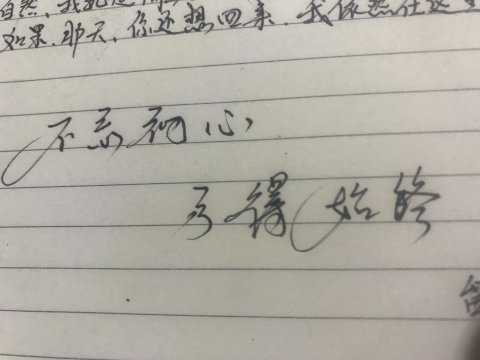 自然、我
如果、那天、你还想回来、我依然在这
不忘初心
方得始终